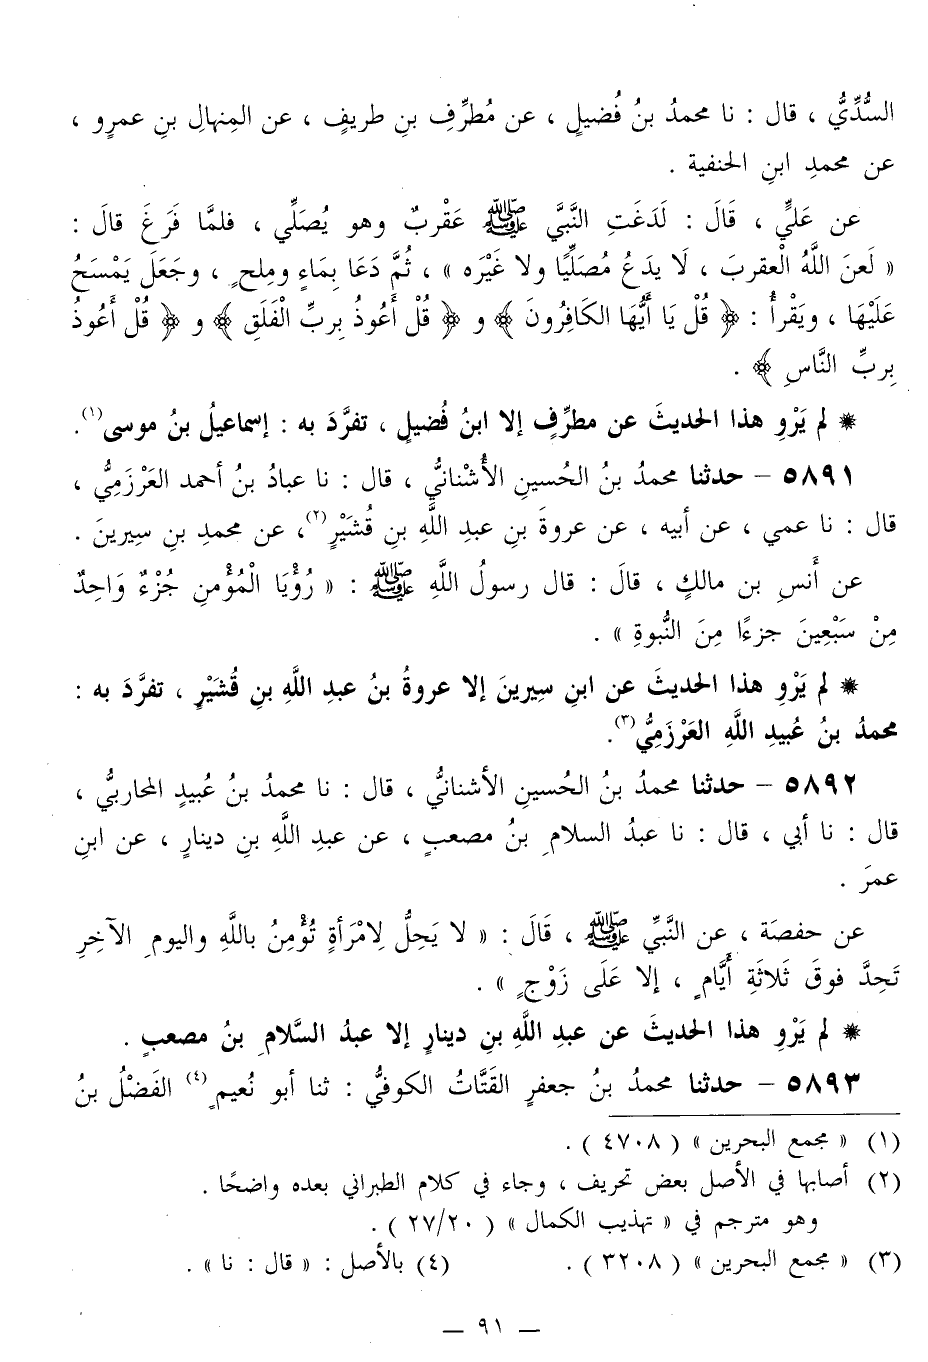 السُّدِّيُّ ، قال : نا محمدُ بنُ فُضيلٍ ، عن مُطرِّفِ بنِ طريفٍ ، عن المِنهالِ بنِ عمرٍو ،
عن محمدِ ابنِ الحنفية .
عن عَليٍّ ، قَالَ : لَدَغَتِ النَّبيَّ ﷺ عَقْربٌ وهو يُصَلِّي ، فلمَّا فَرَغَ قالَ :
« لَعنَ اللَّهُ الْعقربَ ، لَا يدَعُ مُصَليًّا ولا غَيْرَه » ، ثُمَّ دَعَا بِمَاءٍ ومِلحٍ ، وجَعَلَ يَمْسَحُ
عَلَيْهَا ، ويَقْرأُ : ﴿ قُلْ يَا أَيُّهَا الكَافِرُونَ ﴾ و ﴿ قُلْ أَعُوذُ بِربِّ الْفَلَقِ ﴾ و ﴿ قُلْ أَعُوذُ
بِربِّ النَّاسِ ﴾ .
* لم يَرْوِ هذا الحديثَ عن مطرِّفٍ إلا ابنُ فُضيلٍ ، تفرَّدَ به : إسماعيلُ بنُ موسى(١).
٥٨٩١ – حدثنا محمدُ بنُ الحُسينِ الأُشْنانيُّ ، قال : نا عبادُ بنُ أحمد العَرْزَمِيُّ ،
قال : نا عمي ، عن أبيه ، عن عروةَ بنِ عبدِ اللَّهِ بنِ قُشَيْرٍ(٢)، عن محمدِ بنِ سِيرينَ .
عن أَنسِ بن مالكٍ ، قالَ : قال رسولُ اللَّهِ ﷺ : « رُؤْيَا الْمُؤْمنِ جُزْءٌ وَاحِدٌ
مِنْ سَبْعِينَ جزءًا مِنَ النُّبوةِ » .
* لم يَرْوِ هذا الحديثَ عن ابنِ سِيرينَ إلا عروةُ بنُ عبدِ اللَّهِ بنِ قُشَيْرٍ ، تفرَّدَ به :
محمدُ بنُ عُبيدِ اللَّهِ العَرْزَمِيُّ(٣).
٥٨٩٢ – حدثنا محمدُ بنُ الحُسينِ الأشنانيُّ ، قال : نا محمدُ بنُ عُبيدٍ المحاربيُّ ،
قال : نا أبي ، قال : نا عبدُ السلامِ بنُ مصعبٍ ، عن عبدِ اللَّهِ بنِ دينارٍ ، عن ابنِ
عمرَ .
عن حفصَة ، عن النَّبيِّ ﷺ ، قَالَ : « لا يَحِلُّ لِامْرَأةٍ تُؤْمِنُ باللَّهِ واليومِ الآخِرِ
تَحِدَّ فوقَ ثَلاثَةِ أَيَّامٍ ، إلا عَلَى زَوْجٍ » .
* لم يَرْوِ هذا الحديثَ عن عبدِ اللَّهِ بنِ دينارٍ إلا عبدُ السَّلامِ بنُ مصعبٍ .
٥٨٩٣ – حدثنا محمدُ بنُ جعفرٍ القَتَّاتُ الكوفيُّ : ثنا أبو نُعيمٍ(٤) الفَضْلُ بنُ
(١) « مجمع البحرين » ( ٤٧٠٨ ) .
(٢) أصابها في الأصل بعض تحريف ، وجاء في كلام الطبراني بعده واضحًا .
وهو مترجم في « تهذيب الكمال » ( ٢٧/٢٠ ) .
(٣) « مجمع البحرين » ( ٣٢٠٨ ) . (٤) بالأصل : « قال : نا » .
— ٩١ —